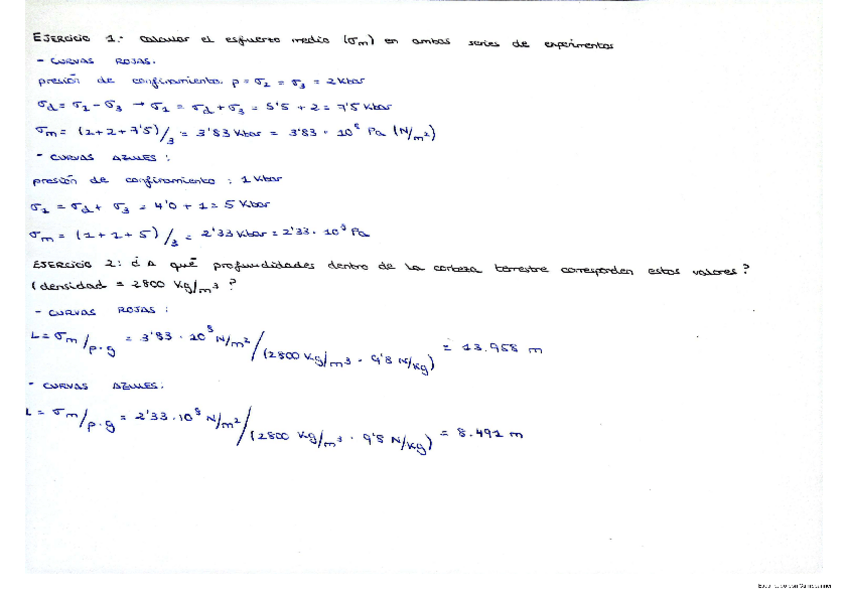 EJERCICIO 1.- Calcular el esfuerzo medio (σm) en ambas series de experimentos
- CURVAS ROJAS.
presión de confinamiento. p = σ2 = σ3 = 2 Kbar
σd = σ1 - σ3 → σ1 = σd + σ3 = 5'5 + 2 = 7'5 Kbar
σm = (2+2+7'5)/3 = 3'83 Kbar = 3'83 · 10⁸ Pa (N/m²)
- CURVAS AZULES :
presión de confinamiento : 1 Kbar
σ1 = σd + σ3 = 4'0 + 1 = 5 Kbar
σm = (1+1+5)/3 = 2'33 Kbar = 2'33 · 10⁸ Pa
EJERCICIO 2: ¿A qué profundidades dentro de la corteza terrestre corresponden estos valores?
(densidad = 2800 Kg/m³ ?
- CURVAS ROJAS :
L = σm/ρ·g = 3'83 · 10⁸ N/m² / (2800 Kg/m³ · 9'8 N/Kg) = 13.958 m
- CURVAS AZULES.
L = σm/ρ·g = 2'33 · 10⁸ N/m² / (2800 Kg/m³ · 9'8 N/Kg) = 8.491 m